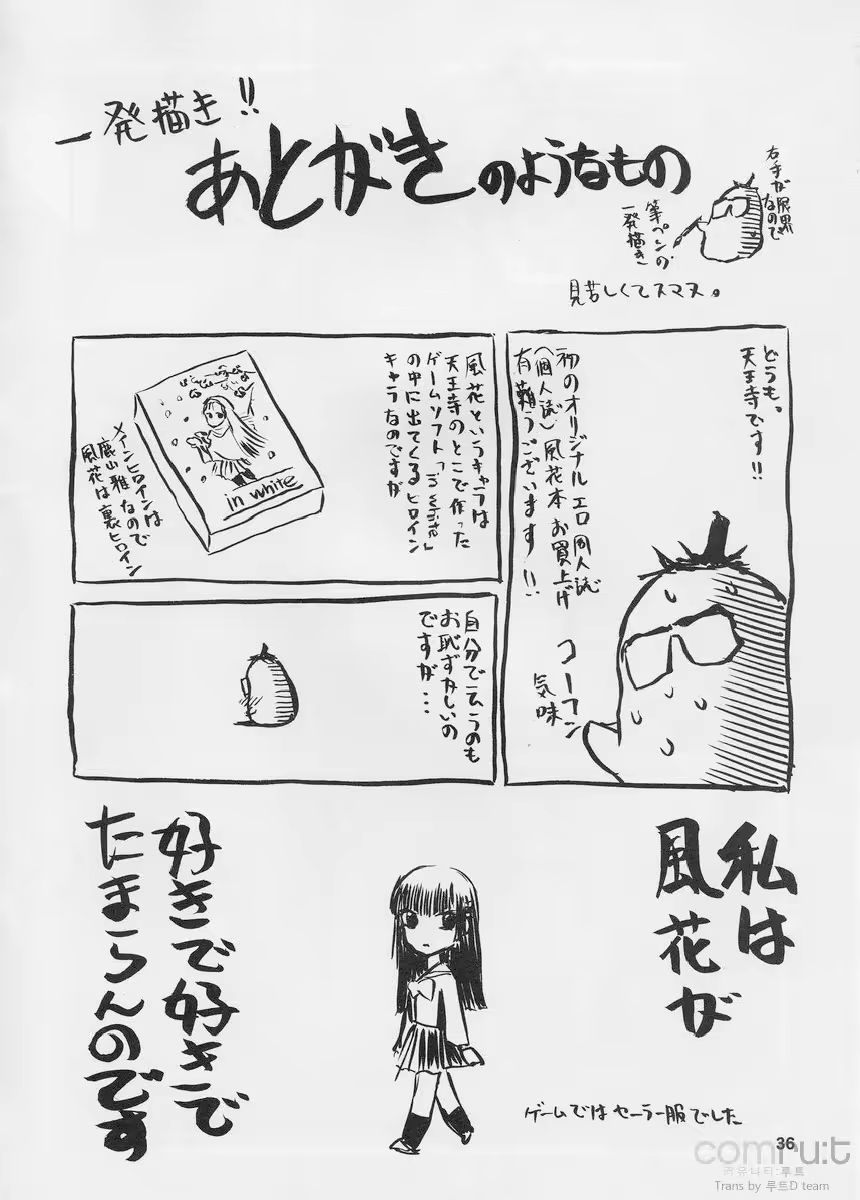 一発描き!!
あとがきのようなもの
右手が
限界
なので
筆ペンの
一発描き
見苦しくてスマヌ。
どうも。
天王寺です!!
初のオリジナルエロ同人誌
(個人誌)風花本お買上げ
有難うございます!!
コーフン
気味
風花というキャラは
天王寺のとこで作った
ゲームソフト「in white」
の中に出てくるヒロイン
キャラなのですが
in white
メインヒロインは
鹿山雅なので
風花は裏ヒロイン
自分で云うのも
お恥ずかしいの
ですが・・・
私は
風花が
好きで好きで
たまらんのです
ゲームではセーラー服でした
36
comru:t
커뮤니티:루트
Trans by 루트D team